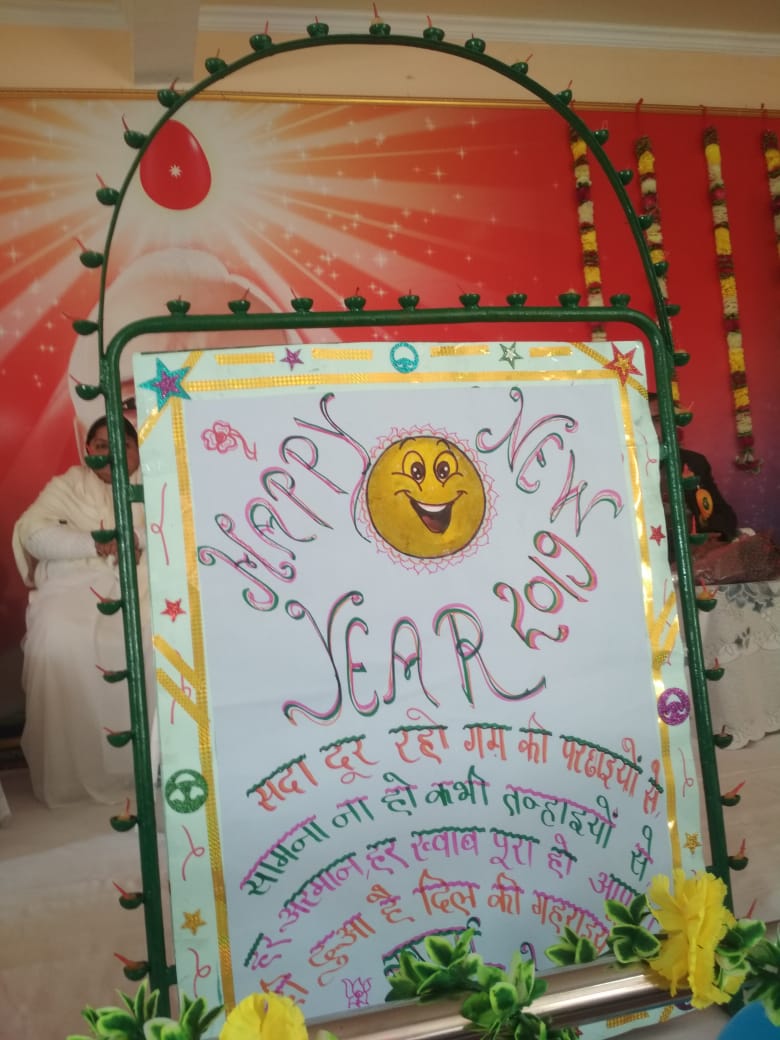 HAPPY NEW
YEAR 2019
सदा दूर रहो गम की परछाइयों से,
सामना ना हो कभी तन्हाइयों से
हर अरमान, हर ख्वाब पूरा हो
दुआ है दिल की